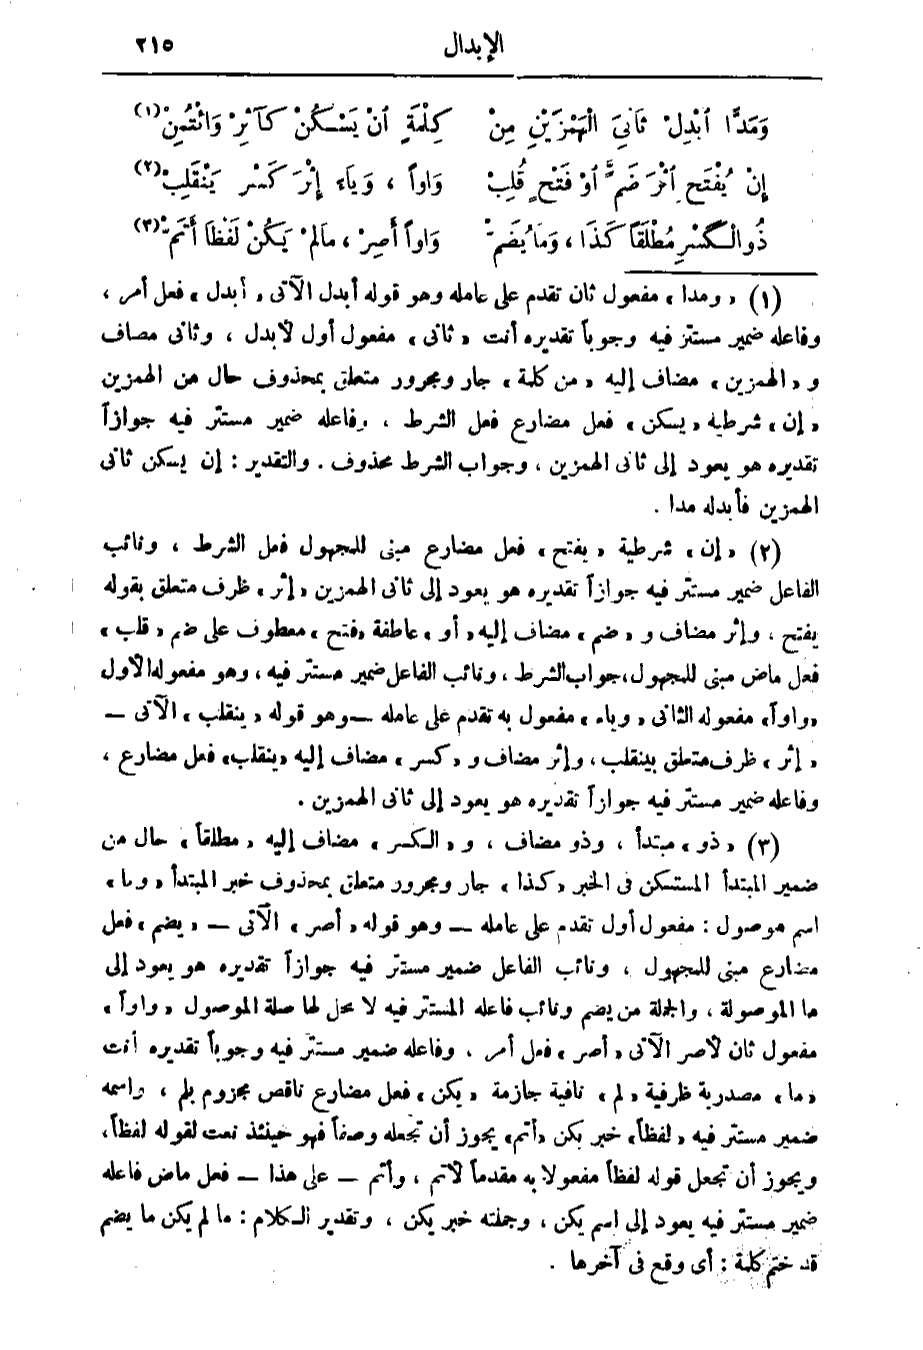 الإبدال ٢١٥
وَمَدًّا ٱبْدِلْ ثَانِيَ الْهَمْزَيْنِ مِنْ كِلْمَةٍ ٱنْ يَسْكُنْ كَآثِرْ وَائْتُمِنْ (١)
إِنْ يُفْتَحِ ٱثْرَ ضَمٍّ أَوْ فَتْحٍ قُلِبْ وَاواً ، وَيَاءً إِثْرَ كَسْرٍ يَنْقَلِبْ (٢)
ذُو الْكَسْرِ مُطْلَقاً كَذَا ، وَمَا يُضَمّْ وَاواً أَصِرْ ، مَالَمْ يَكُنْ لَفْظاً أَتَمّْ (٣)
(١) « ومدا » مفعول ثان تقدم على عامله وهو قوله أبدل الآتى « أبدل » فعل أمر ،
وفاعله ضمير مستتر فيه وجوباً تقديره أنت « ثانى » مفعول أول لأبدل ، وثانى مصاف
و « الهمزين » مضاف إليه « من كلمة » جار ومجرور متعلق بمحذوف حال من الهمزين
« إن » شرطية « يسكن » فعل مضارع فعل الشرط ، وفاعله ضمير مستتر فيه جوازاً
تقديره هو يعود إلى ثانى الهمزين ، وجواب الشرط محذوف . والتقدير : إن يسكن ثانى
الهمزين فأبدله مدا .
(٢) « إن » شرطية « يفتح » فعل مضارع مبنى للمجهول فعل الشرط ، ونائب
الفاعل ضمير مستتر فيه جوازاً تقديره هو يعود إلى ثانى الهمزين « إثر » ظرف متعلق بقوله
يفتح ، وإثر مضاف و « ضم » مضاف إليه « أو » عاطفة « فتح » معطوف على ضم « قلب »
فعل ماض مبنى للمجهول ، جواب الشرط ، ونائب الفاعل ضمير مستتر فيه ، وهو مفعوله الأول
« واواً » مفعوله الثانى « وياء » مفعول به تقدم على عامله — وهو قوله « ينقلب » الآتى —
« إثر » ظرف متعلق بينقلب ، وإثر مضاف و « كسر » مضاف إليه « ينقلب » فعل مضارع ،
وفاعله ضمير مستتر فيه جوازاً تقديره هو يعود إلى ثانى الهمزين .
(٣) « ذو » مبتدأ ، وذو مضاف ، و « الكسر » مضاف إليه « مطلقاً » حال من
ضمير المبتدأ المستكن فى الخبر « كذا » جار ومجرور متعلق بمحذوف خبر المبتدأ « وما »
اسم موصول : مفعول أول تقدم على عامله — وهو قوله « أصر » الآتى — « يضم » فعل
مضارع مبنى للمجهول ، ونائب الفاعل ضمير مستتر فيه جوازاً تقديره هو يعود إلى
ما الموصولة ، والجملة من يضم ونائب فاعله المستتر فيه لا محل لها صلة الموصول « واواً »
مفعول ثان لأصر الآتى « أصر » فعل أمر ، وفاعله ضمير مستتر فيه وجوباً تقديره أنت
« ما » مصدرية ظرفية « لم » نافية جازمة « يكن » فعل مضارع ناقص مجزوم بلم ، واسمه
ضمير مستتر فيه « لفظاً » خبر يكن « أتم » يجوز أن تجعله وصفاً فهو حينئذ نعت لقوله لفظاً ،
ويجوز أن تجعل قوله لفظاً مفعولا به مقدماً لأتم ، وأتم — على هذا — فعل ماض فاعله
ضمير مستتر فيه يعود إلى اسم يكن ، وجملته خبر يكن ، وتقدير الكلام : ما لم يكن ما يضم
قد ختم كلمة : أى وقع فى آخرها .